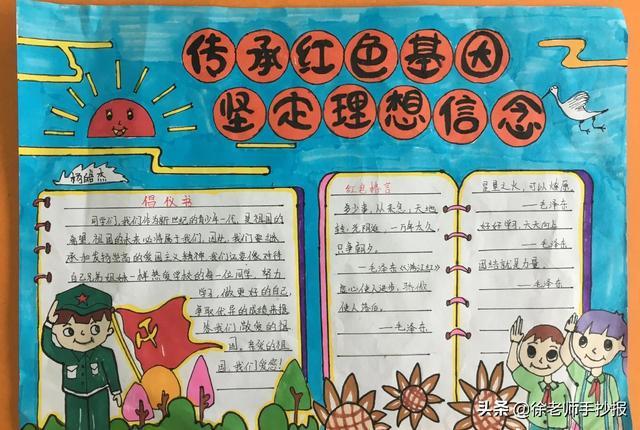 传承红色基因
坚定理想信念
杨皓杰
倡仪书
同学们,我们作为新世纪的青少年一代,是祖国的
希望,祖国的未来必将属于我们,因此,我们要继
承和发扬崇高的爱国主义精神,我们还要像对待
自己兄弟姐妹一样热爱学校的每一位同学,努力
学习,做更好的自己,
争取优异的成绩来报
答我们敬爱的祖
国。亲爱的祖
国,我们爱您!
红色格言
多少事,从来急,天地
转,光阴迫,一万年太久,
只争朝夕。
——毛泽东《满江红》
虚心使人进步,骄傲
使人落后。
——毛泽东
星星之火,可以燎原
——毛泽东
好好学习,天天向上
——毛泽东
团结就是力量。
——毛泽东
头条 @徐老师手抄报